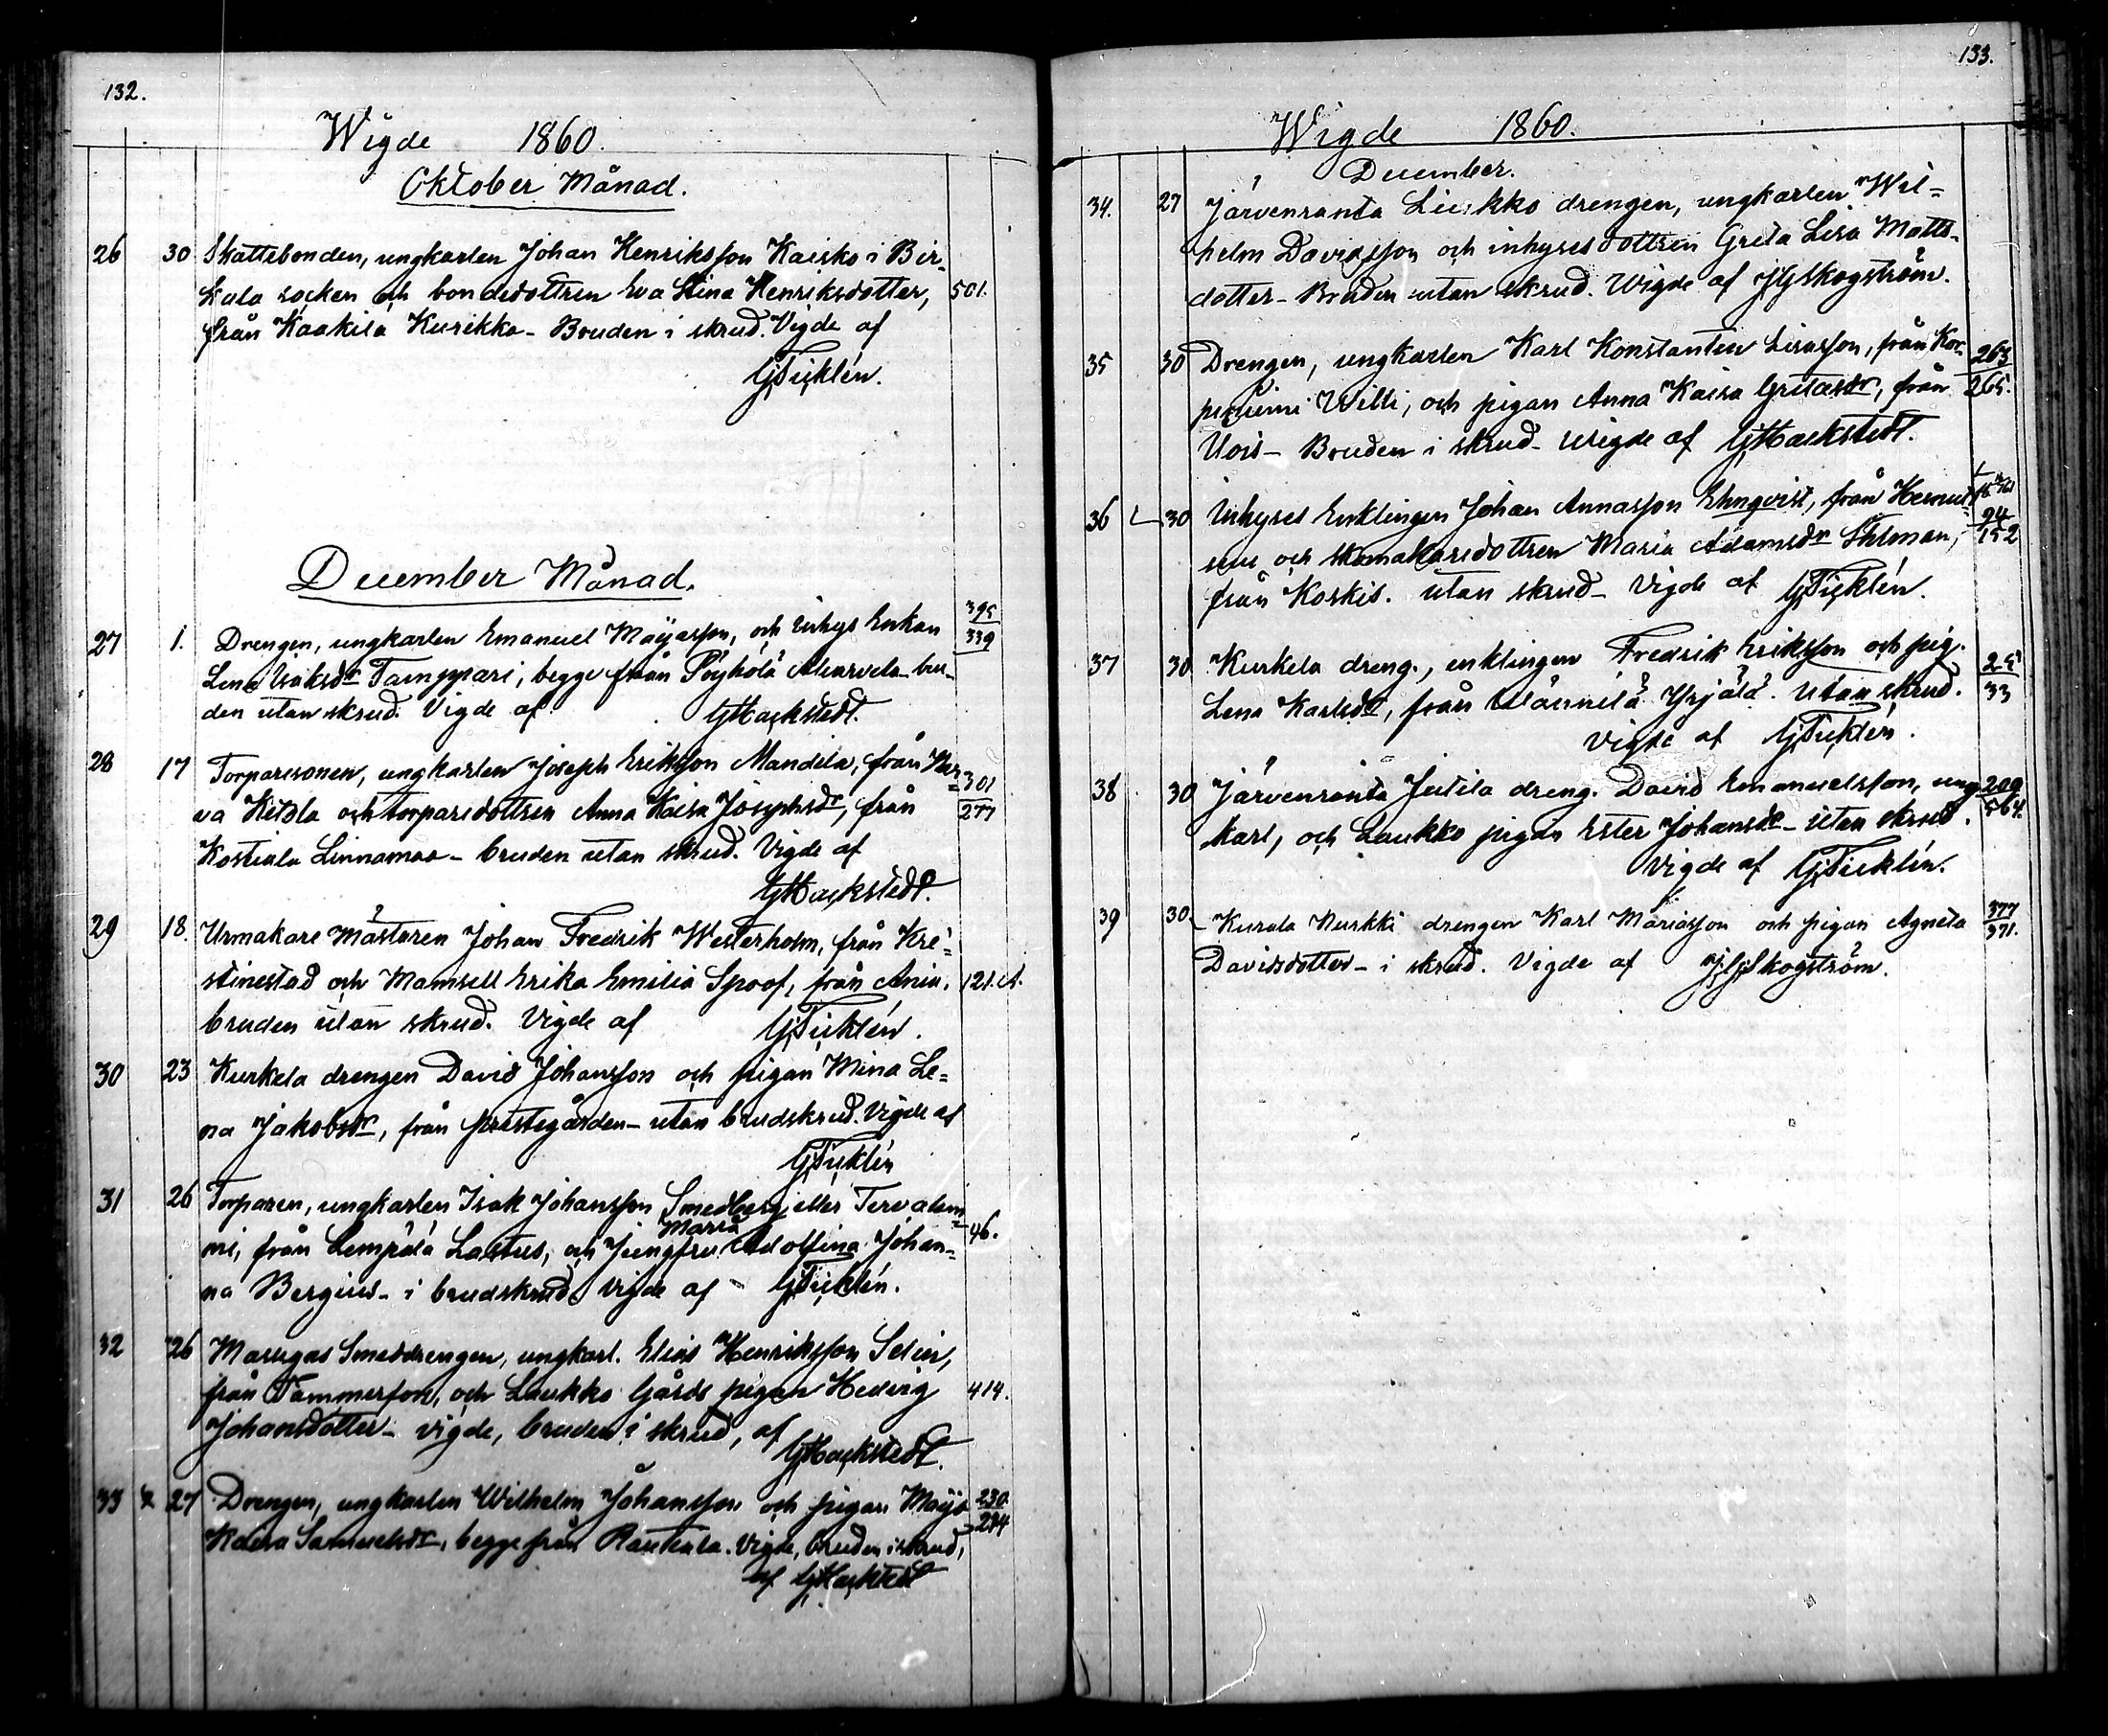 132.
Wigde 1860.
Oktober Månad.
26 30 Skattebonden, ungkarlen Johan Henriksson Kaisko i Bir-
kala socken och bondedottren Eva Stina Henriksdotter, 501.
från Kaakila Kurikka - Bruden i skrud. Vigde af
GTicklén.
December Månad.
27 1. Drengen, ungkarlen Emanuel Majasson, och Inhys Enkan 395
Lena Isaksdr Tamppari, begge från Pöyhölä Alkarvela - bru- 339
den utan skrud. Vigde af GHackstedt.
28 17 Torparesonen, ungkarlen Joseph Eriksson Mandela, från Nar= 301
va Ketola och torparedottren Anna Kaisa Josephsdr, från 277
Kostiala Linnamaa - bruden utan skrud. Vigde af
GHackstedt.
29 18. Urmakare Mästaren Johan Fredrik Westerholm, från Kri=
stinestad och Mamsell Erika Emilia Spoof, från Ania. 121. A.
bruden utan skrud. Vigde af GTicklén.
30 23 Kurkela drengen David Johansson och pigan Mina Le=
na Jakobsdr, från prestegården - utan brudskrud. Vigde af
GTicklén
31 26 Torparen, ungkarlen Isak Johansson Smedberg eller Tervalam=
Maria
mi, från Lempälä Lastus, och Jungfru Adolfina Johan= 46.
na Bergius - i brudskrud. Vigde af - GTicklén.
32 26 Masugns Smeddrengen, ungkarl. Elias Henriksson Selin,
från Tammerfors, och Laukko Gårds pigan Hedvig 414.
Johansdotter - vigde, bruden i skrud, af
GHackstedt.
33 27 Drengen, ungkarlen Wilhelm Johansson och pigan Maja 230.
Kaisa Samuelsdr, begge från Rautiala. Vigde, bruden i skrud, 234
af GHackstedt
133.
Wigde 1860.
December.
34. 27 Järvenranta Liukko drengen, ungkarlen Wil=
helm Davidsson och inhysesdottren Greta Lisa Matts-
dotter - Bruden utan skrud. Wigde af JGSkogström.
35 30 Drengen, ungkarlen Karl Konstantin Lisasson, från Kor- 263
piniemi Willi, och pigan Anna Kaisa Gretasdr, från 265.
Uois - Bruden i skrud - Wigde af GHackstedt.
36 30 Inhyses Enklingen Johan Annasson Ehnqvist, från 94
och skomakaredottren Maria Adamsdr Sthlman, 152
från Koskis. utan skrud - Vigde af GTicklén.
37 30 Kurkela dreng., enklingen Fredrik Eriksson och pig. 25
Lena Karlsdr, från Männilä Yrjälä. Utan skrud. 33
Vigde af GTicklén.
38 30 Järvenranta Jutila dreng. David Emanuelsson, ung- 209
karl, och Laukko pigan Ester Johansdr - utan skrud. 564.
Vigde af GTicklén.
39 30 - Kurala Nurkki drengen Karl Mariasson och pigan Agneta 377
Davidsdotter - i skrud. Vigde af JGSkogström. 371.